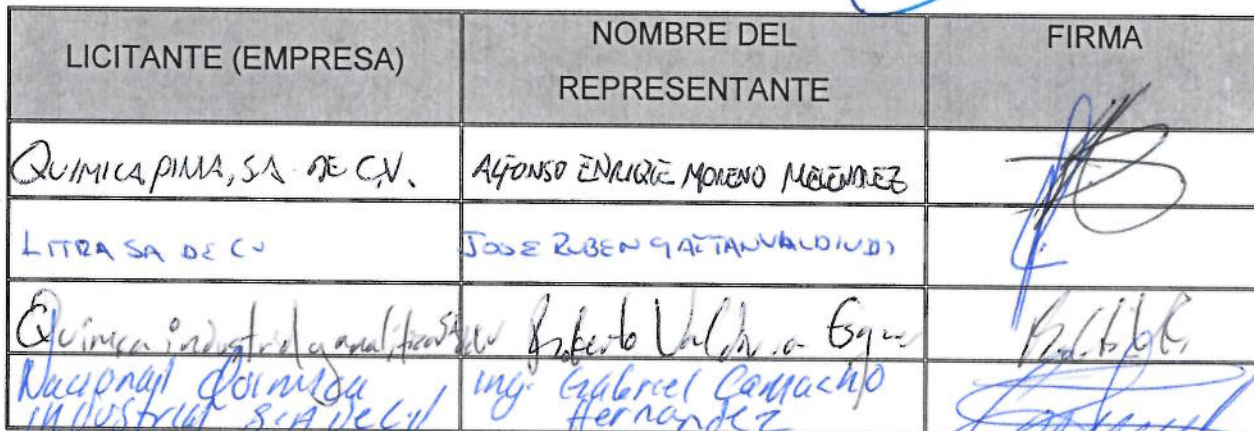 LICITANTE (EMPRESA)
NOMBRE DEL
REPRESENTANTE
FIRMA
QUIMICA PIMA, SA DE C.V.
ALFONSO ENRIQUE MORENO MELENDREZ
LITRA SA DE CV
JOSE RUBEN GAITAN
Química industrial y analítica SA
Roberto
Nacional Quimica
industrial S.A DE CV
ing. Gabriel Camacho
Hernandez